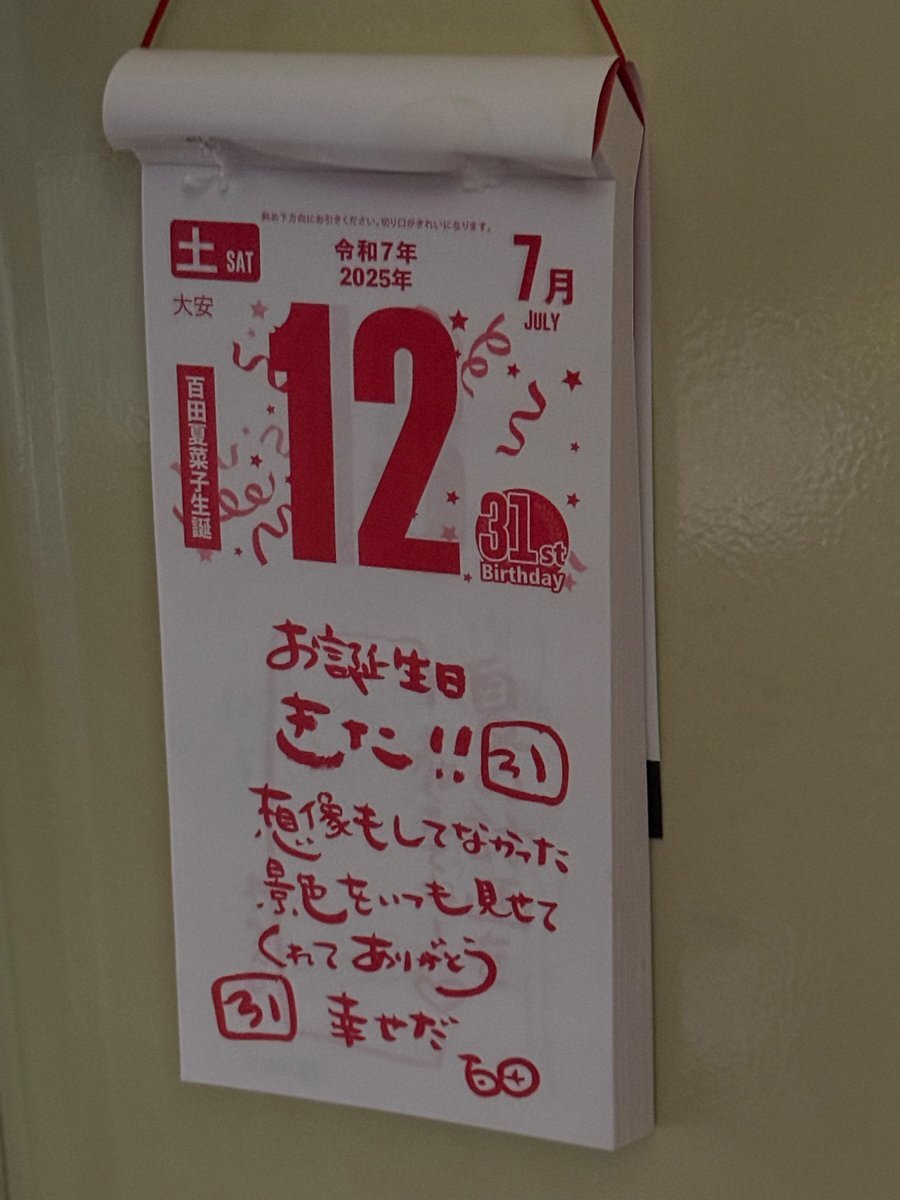 斜め下方向にお引きください。切り口がきれいになります。
土 SAT
令和7年
2025年
7月
JULY
大安
12
百田夏菜子生誕
31st
Birthday
お誕生日
きた!! 31
想像もしてなかった
景色をいつも見せて
くれてありがとう
31 幸せだ
百田